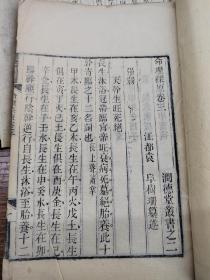 命理探原卷三　潤德堂叢書之二
江都袁　阜樹珊纂述
天幹生旺死絕
長生沐浴冠帶臨官帝旺衰病死墓絕胎養此十
幹寄臨之十二名詞也長上聲
甲木長生在亥乙木長生在午丙火戊土長生
俱在寅丁火己土長生俱在酉庚金長生在巳
辛金長生在子壬水長生在申癸水長生在卯
陽幹順行陰幹逆行自長生沐浴至胎養十二